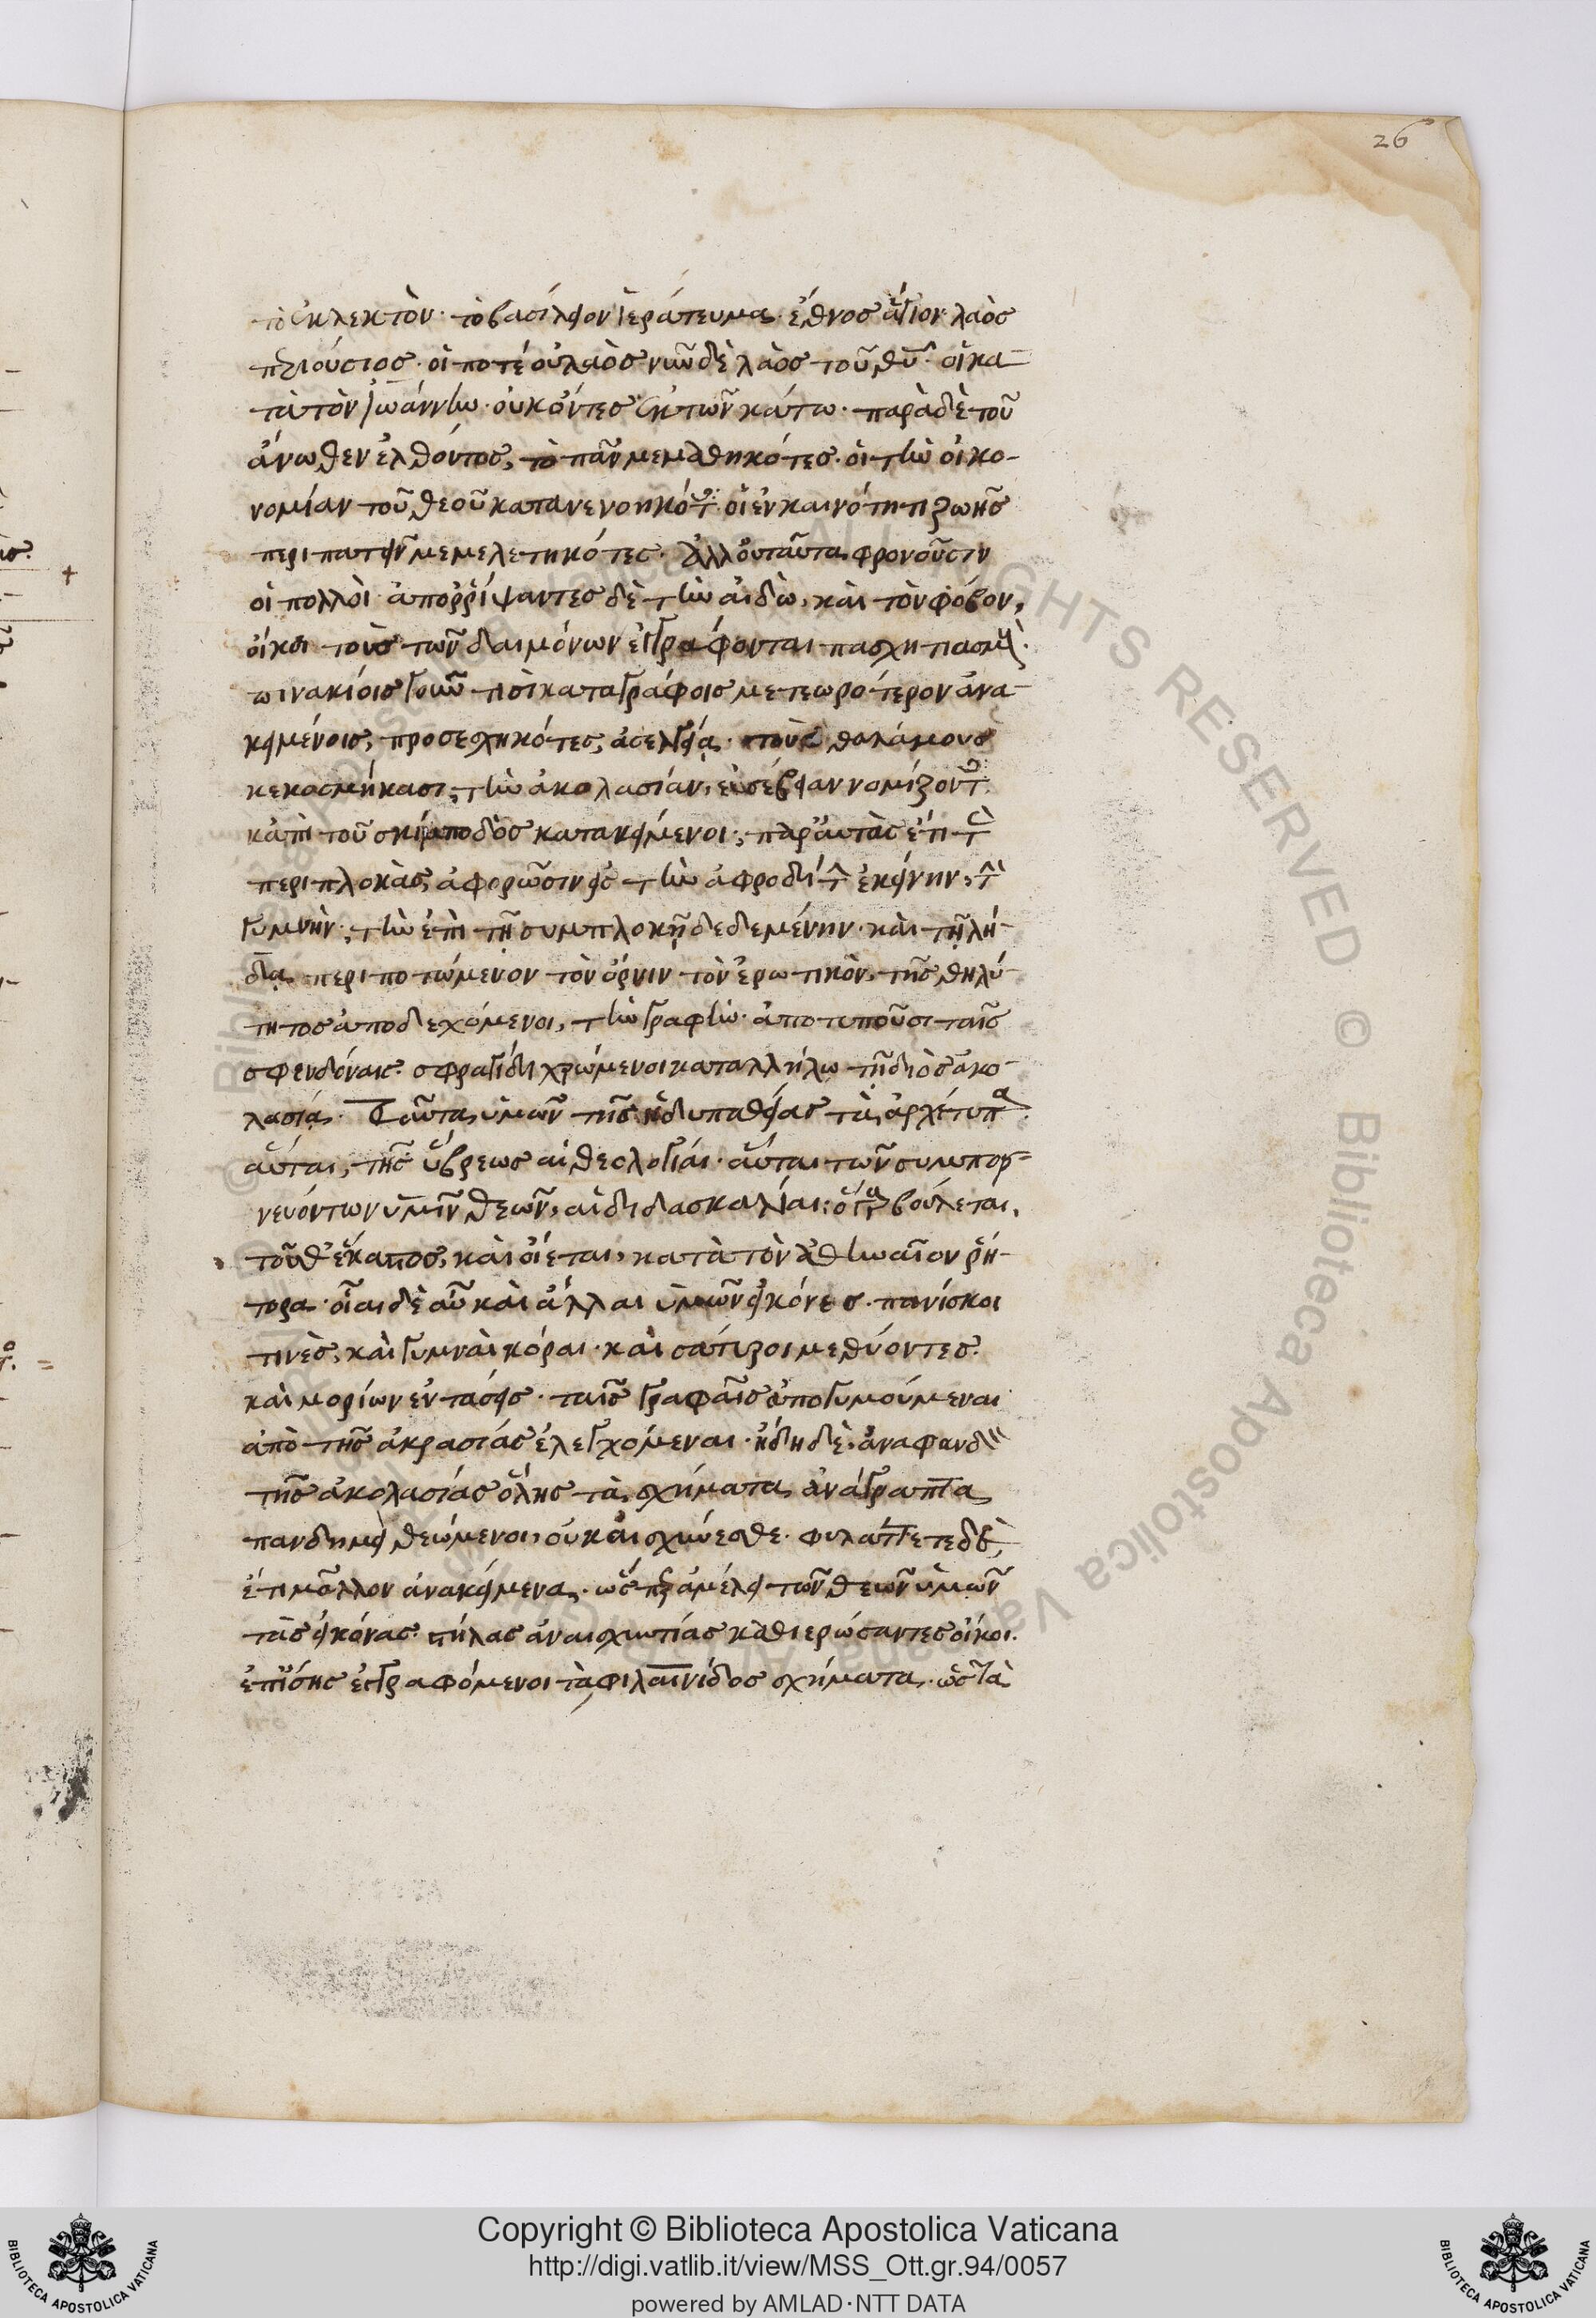 26
τὸ ἐκλεκτὸν· τὸ βασίλειον ἱεράτευμα· ἔθνος ἅγιον· λαὸς
περιούσιος· οἱ ποτέ οὐ λαὸς νῦν δὲ λαὸς τοῦ θυ· οἱ κα-
τὰ τὸν ἰωάννην· οὐκ ὄντες ἐκ τῶν κάτω· παρὰ δὲ τοῦ
ἄνωθεν ἐλθόντος, τὸ πᾶν μεμαθηκότες· οἱ τὴν οἰκο-
νομίαν τοῦ θεοῦ κατανενοηκότες· οἱ ἐν καινότητι ζωῆς
περιπατεῖν μεμελετηκότες· ἀλλ' οὐ ταῦτα φρονοῦσιν
οἱ πολλοὶ· ἀπορρίψαντες δὲ τὴν αἰδῶ, καὶ τὸν φόβον,
οἴκοι τοὺς τῶν δαιμόνων ἐγγράφονται πασχητιασμούς·
πινακίοις γοῦν τισὶ καταγράφοις μετεωρότερον ἀνα-
κειμένοις, προσεσχηκότες, ἀσελγείᾳ· τοὺς θαλάμους
κεκοσμήκασι, τὴν ἀκολασίαν, εὐσέβειαν νομίζοντες·
κἀπὶ τοῦ σκίμποδος κατακείμενοι, παρ' αὐτὰς ἔτι τὰς
περιπλοκὰς, ἀφορῶσιν εἰς τὴν ἀφροδίτην ἐκείνην, τὴν
γυμνὴν, τὴν ἐπὶ τῇ συμπλοκῇ δεδεμένην· καὶ τῇ λή-
δᾳ περιποτώμενον τὸν ὄρνιν τὸν ἐρωτικὸν, τῆς θηλύ-
τητος ἀποδεχόμενοι, τὴν γραφὴν· ἀποτυποῦσι ταῖς
σφενδόναις· σφραγίδι χρώμενοι καταλλήλῳ τῇ διὸς ἀκο-
λασίᾳ· Ταῦτα ὑμῶν τῆς ἡδυπαθείας τὰ ἀρχέτυπα·
αὗται, τῆς ὕβρεως αἱ θεολογίαι· αὗται τῶν συμπορ-
νευόντων ὑμῖν θεῶν, αἱ διδασκαλίαι· ὃ γὰρ βούλεται,
τοῦθ' ἕκαστος, καὶ οἴεται, κατὰ τὸν ἀθηναῖον ῥή-
τορα· οἷαι δὲ αὖ καὶ ἄλλαι ὑμῶν εἰκόνες· πανίσκοι
τινὲς, καὶ γυμναὶ κόραι· καὶ σάτυροι μεθύοντες·
καὶ μορίων ἐντάσεις· ταῖς γραφαῖς ἀπογυμούμεναι
ἀπὸ τῆς ἀκρασίας ἐλεγχόμεναι· ἤδη δὲ ἀναφανδὸν
τῆς ἀκολασίας ὅλης τὰ σχήματα ἀνάγραπτα
πανδημεὶ θεώμενοι, οὐκ αἰσχύνεσθε· φυλάττετε δὲ,
ἔτι μᾶλλον ἀνακείμενα· ὥσπερ ἀμέλει τῶν θεῶν ὑμῶν
τὰς εἰκόνας· στήλας ἀναισχυντίας καθιερώσαντες οἴκοι·
ἐπίσης ἐγγραφόμενοι τὰ φιλαινίδος σχήματα· ὡς τὰ
Copyright © Biblioteca Apostolica Vaticana
http://digi.vatlib.it/view/MSS_Ott.gr.94/0057
powered by AMLAD·NTT DATA